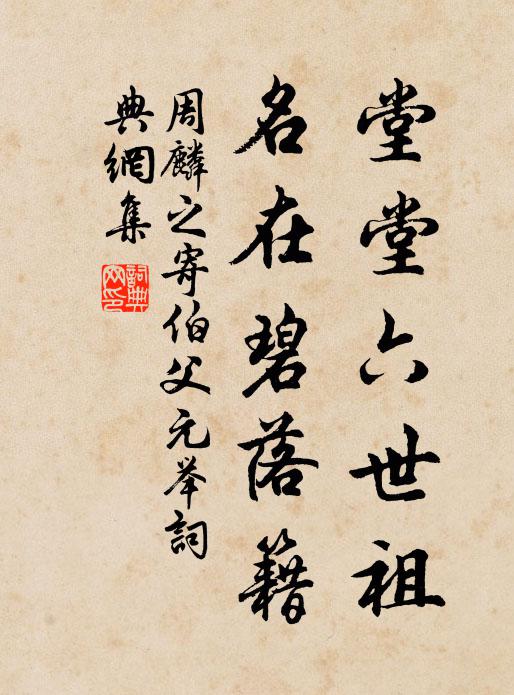 堂堂六世祖
名在碧落籍
周麟之寄伯父元举詞
典網集
詞典網印